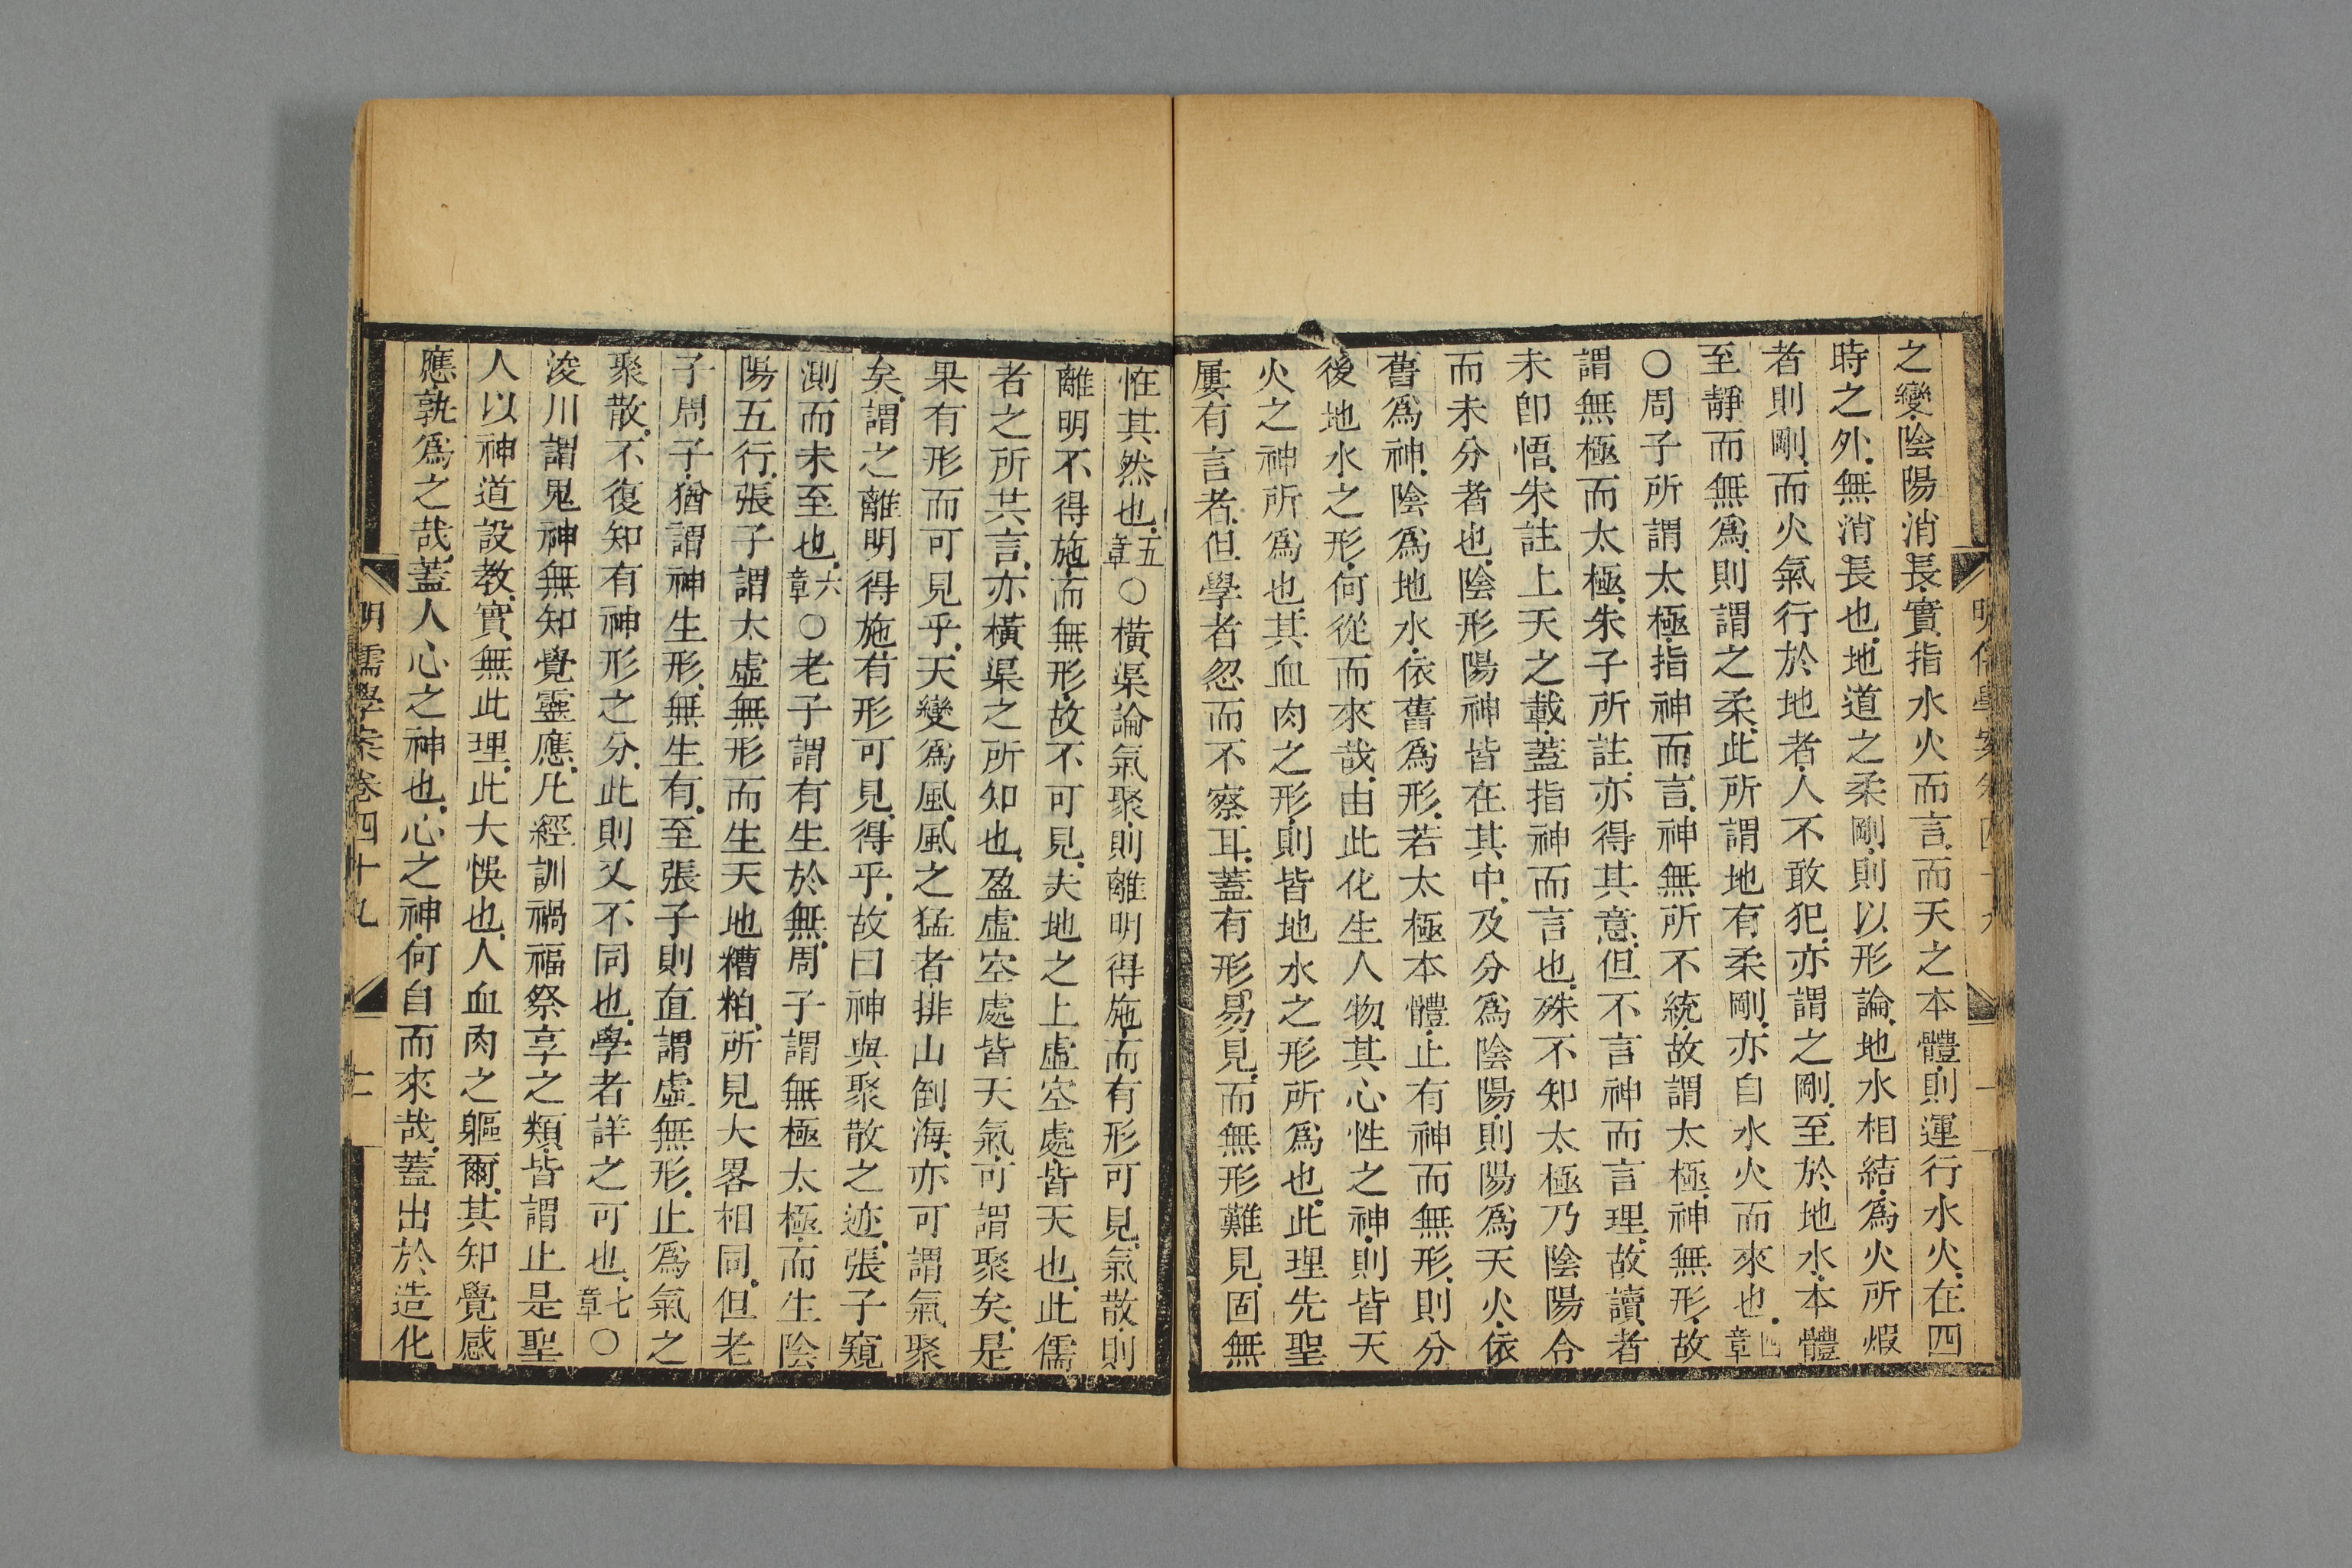 之變陰陽消長實指水火而言而天之本體則運行水火在四
時之外無消長也地道之柔剛則以形論地水相結爲火所煆
者則剛而火氣行於地者人不敢犯亦謂之剛至於地水本體
至靜而無爲則謂之柔此所謂地有柔剛亦自水火而來也四章
○周子所謂太極指神而言神無所不統故謂太極神無形故
謂無極而太極朱子所註亦得其意但不言神而言理故讀者
未卽悟朱註上天之載蓋指神而言也殊不知太極乃陰陽合
而未分者也陰形陽神皆在其中及分爲陰陽則陽爲天火依
舊爲神陰爲地水依舊爲形若太極本體止有神而無形則分
後地水之形何從而來哉由此化生人物其心性之神則皆天
火之神所爲也其血肉之形則皆地水之形所爲也此理先聖
屢有言者但學者忽而不察耳蓋有形易見而無形難見固無
恠其然也五章○橫渠論氣聚則離明得施而有形可見氣散則
離明不得施而無形故不可見夫地之上虛空處皆天也此儒
者之所共言亦橫渠之所知也盈虛空處皆天氣可謂聚矣是
果有形而可見乎天變爲風風之猛者排山倒海亦可謂氣聚
矣謂之離明得施有形可見得乎故曰神與聚散之迹張子窺
測而未至也六章○老子謂有生於無周子謂無極太極而生陰
陽五行張子謂太虛無形而生天地糟粕所見大畧相同但老
子周子猶謂神生形無生有至張子則直謂虛無形止爲氣之
聚散不復知有神形之分此則又不同也學者詳之可也七章○
浚川謂鬼神無知覺靈應凡經訓禍福祭享之類皆謂止是聖
人以神道設教實無此理此大悞也人血肉之軀爾其知覺感
應孰爲之哉蓋人心之神也心之神何自而來哉蓋出於造化
明儒學案卷四十九